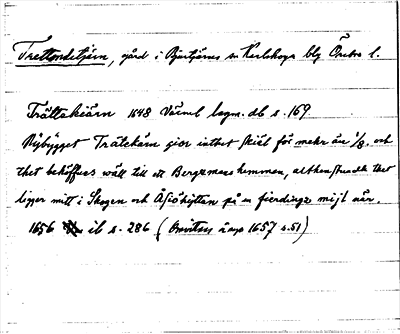 Trettondetjärn, gård i Bjurtjärns sn Karlskoga blg Örebro l.
Trättekiärn 1648 Värml lagm. db s. 169
Nybygget Trätekärn giör inthet skiäl för mehr än 1/8, och
thet behöffues wäll till ett Bergzmans hemman, althenstundh thet
ligger mitt i Skogen och Åsiöhyttan på en fierdings mijl när.
1656 ib s. 286 ( 1657 s. 51)